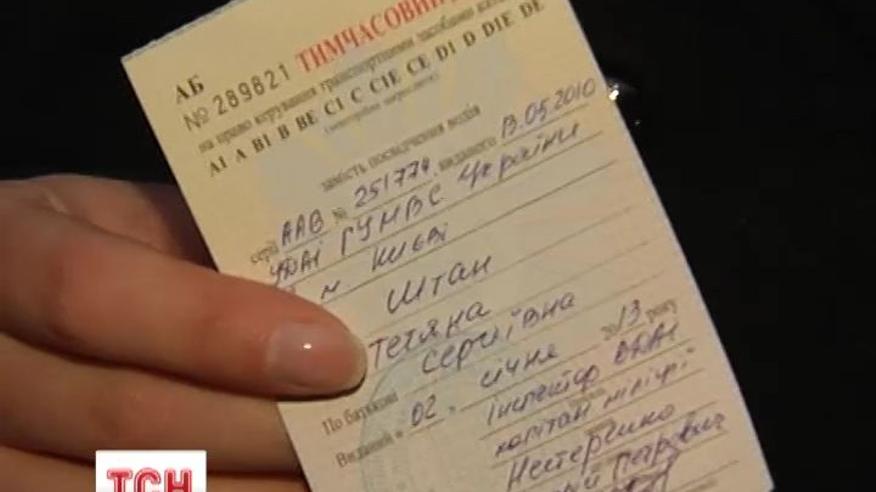 ТИМЧАСОВИЙ
АБ
№ 289821
на право керування транспортними засобами кат
А1 А В1 В ВЕ С1 С С1Е СЕ D1 D D1E DE
(непотрібне закреслити)
замість посвідчення водія
серії ААВ № 251774 виданого 13.05.2010
УДАІ ГУМВС України
в м Києві
Штан
Тетяна
По батькові Сергіївна
Виданий « 02 » січня 2013 року
інспектор ВДАІ
капітан міліції
Нестеренко
Петрович
ТСН